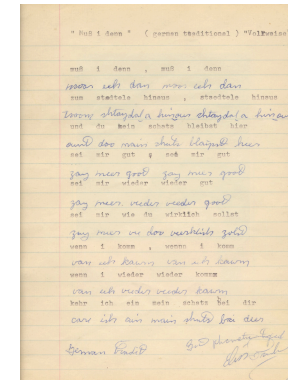 " Muß i denn " ( german traditional ) "Volkweise
muß i denn , muß i denn
moos ich dan moos ich dan
zum stadtele hinaus , stadtele hinaus
zoom shtaydal a hinous shtaydal a hinous
und du mein schatz bleibst hier
aund doo main shats blaipst heer
sei mir gut , sei mir gut
zay meer good zay meer good
sei mir wieder wieder gut
zay meer veeder veeder good
sei mir wie du wirklich sollst
zay meer vee doo
wenn i komm , wenns i komm
van ich kawm van ich kawm
wenn i wieder wieder komm
van ich veeder veeder kawm
kehr ich ein mein schatz bei dir
care ich ain main shats bai deer
German